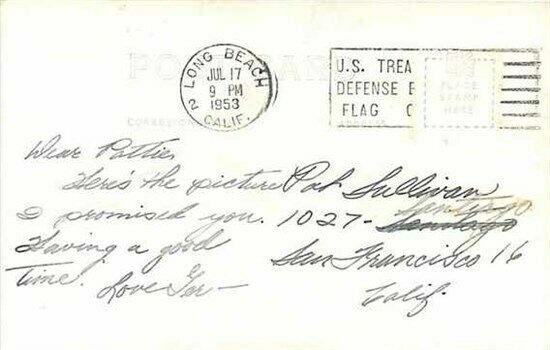 POST CARD
LONG BEACH
JUL 17
9 PM
1953
2 CALIF.
U.S. TREA
DEFENSE
FLAG
PLACE
STAMP
HERE
ADDRESS
Dear Pattie,
Here's the picture
I promised you.
Having a good
time.
Love Ger-
Pat Sullivan
Santiago
1027-
San Francisco 16
Calif.